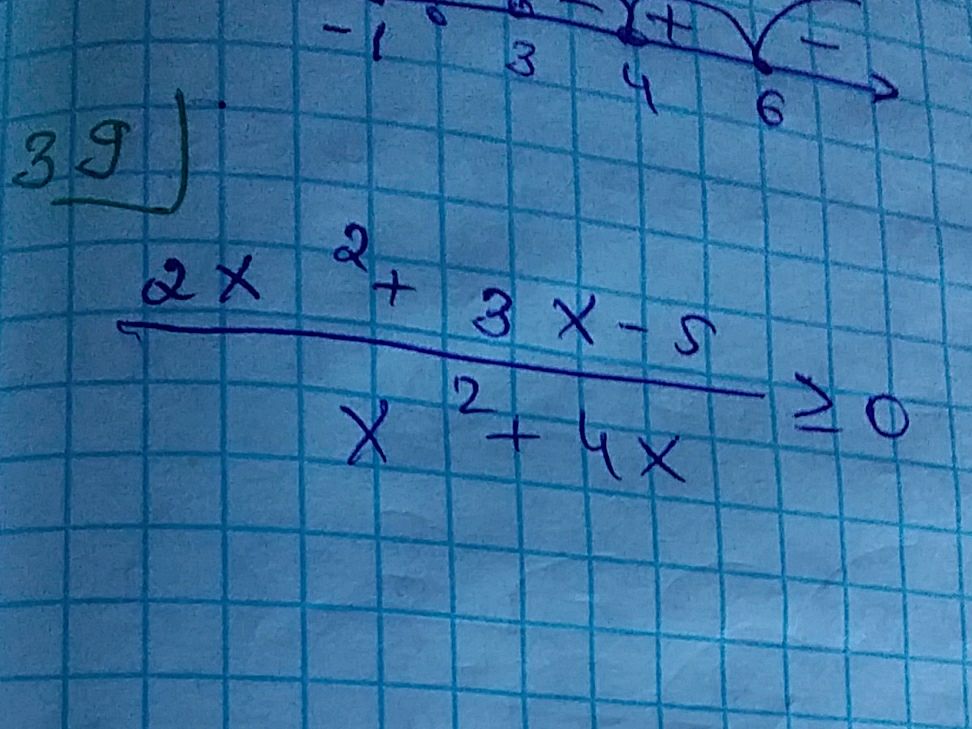 - + -
-1 3 4 6
39
2x² + 3x - 5
x² + 4x ≥ 0